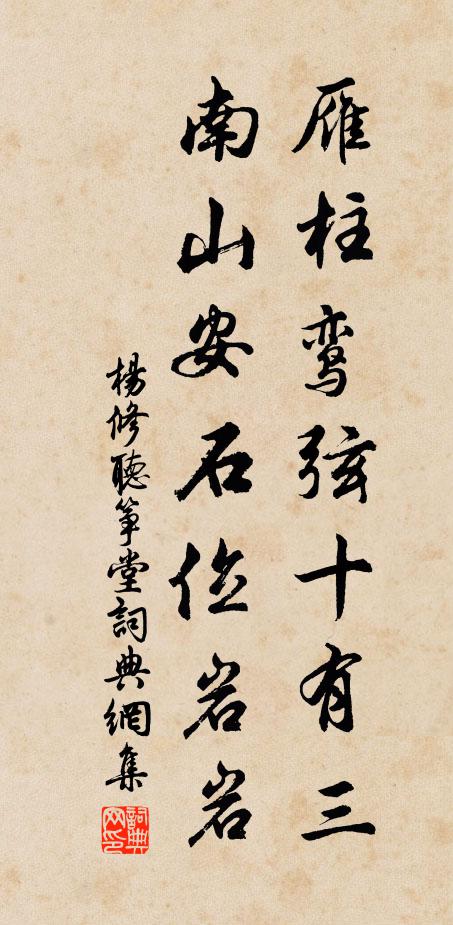 雁柱鸾弦十有三
南山安石位岩岩
楊修聽筝堂詞典網集
詞典网印